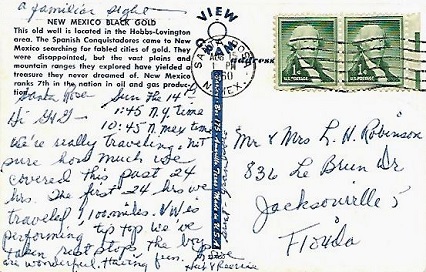 a familiar sight
NEW MEXICO BLACK GOLD
This old well is located in the Hobbs-Lovington
area. The Spanish Conquistadores came to New
Mexico searching for fabled cities of gold. They
were disappointed, but the vast plains and
mountain ranges they explored have yielded a
treasure they never dreamed of. New Mexico
ranks 7th in the nation in oil and gas produc-
tion.
Santa Rosa Sun the 14
1:45 N.Y. time
10:45 N. mex time
We're really traveling. not
sure how much we
covered this past 24
hrs. The first 24 hrs we
traveled 1100 miles. VW is
performing tip top. We've
taken rest stops the
are wonderful. Having fun.
VIEW
SANTA ROSA
AUG
1 PM
1960
N. MEX.
Address
U.S. POSTAGE
U.S. POSTAGE
Mr & Mrs L. H. Robinson
836 Le Brun Dr
Jacksonville 5
Florida